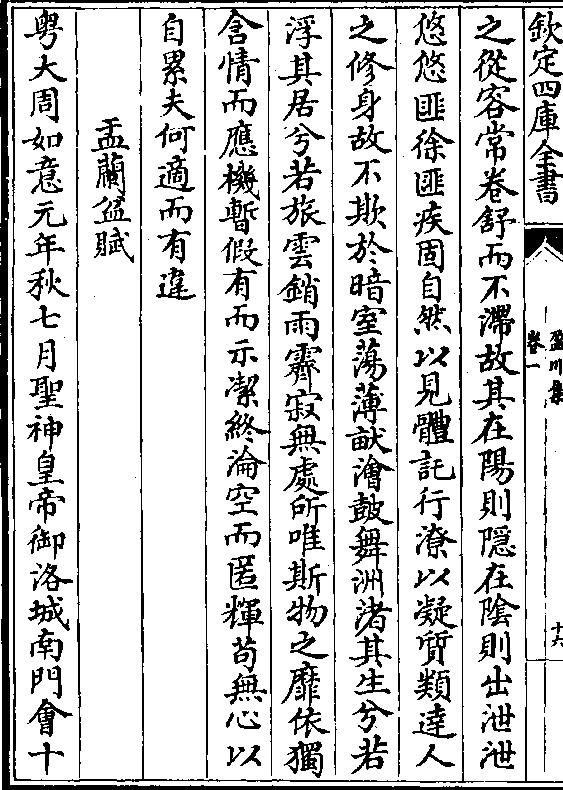 欽定四庫全書
盈川集
卷一
十六
之從容常卷舒而不滯故其在陽則隱在陰則出泄泄
悠悠匪徐匪疾固自然以見體託行潦以凝質類達人
之修身故不欺於暗室蕩薄畎澮鼓舞洲渚其生兮若
浮其居兮若旅雲銷雨霽寂無處所唯斯物之靡依獨
含情而應機暫假有而示潔終淪空而匿輝茍無心以
自累夫何適而有違
盂蘭盆賦
粤大周如意元年秋七月聖神皇帝御洛城南門會十